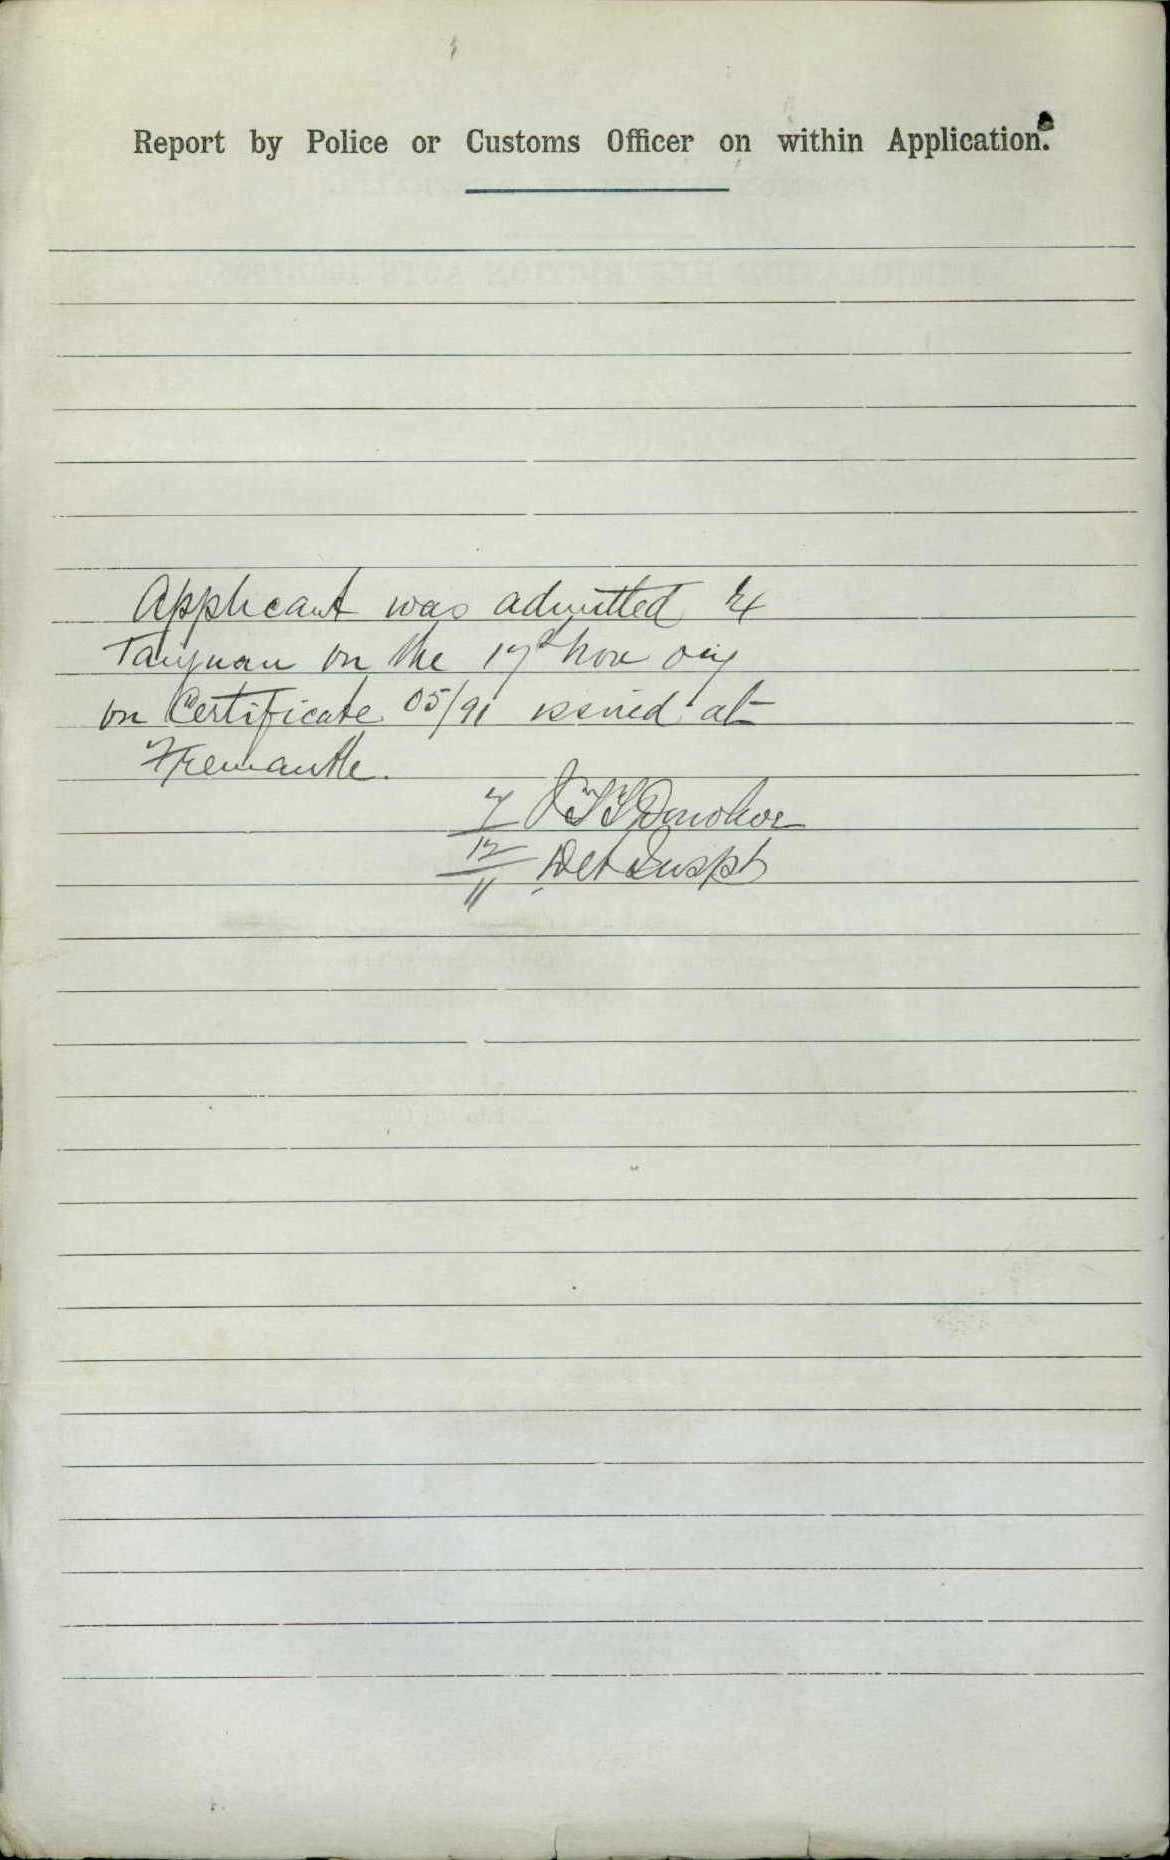 Report by Police or Customs Officer on within Application.
Applicant was admitted
Taiyuan on the 17th Nov
on Certificate 05/91 issued at
Fremantle.
7 Donohoe
12 Det Inspt
11